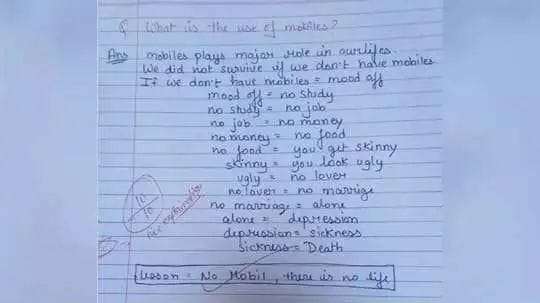 Q What is the use of mobiles?
Ans mobiles plays major role in our lifes.
We did not survive if we don't have mobiles
If we don't have mobiles = mood off
mood off = no study
no study = no job
no job = no money
no money = no food
no food = you get skinny
skinny = you look ugly
ugly = no lover
no lover = no marrige
no marriage = alone
alone = depression
depression = sickness
sickness = Death
10
10
lesson = No Mobil, there is no life